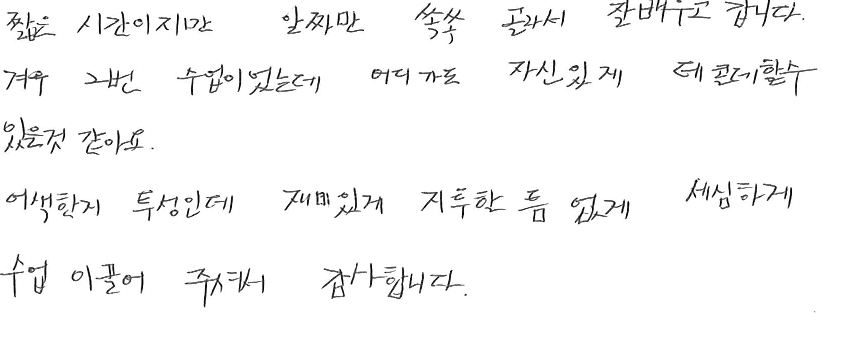 짧은 시간이지만 알짜만 쏙쏙 골라서 잘배우고 갑니다.
겨우 2번 수업이었는데 어디가도 자신있게 데콜테할수
있을것 같아요.
어색한거 투성인데 재미있게 지루할 틈 없게 세심하게
수업 이끌어 주셔서 감사합니다.